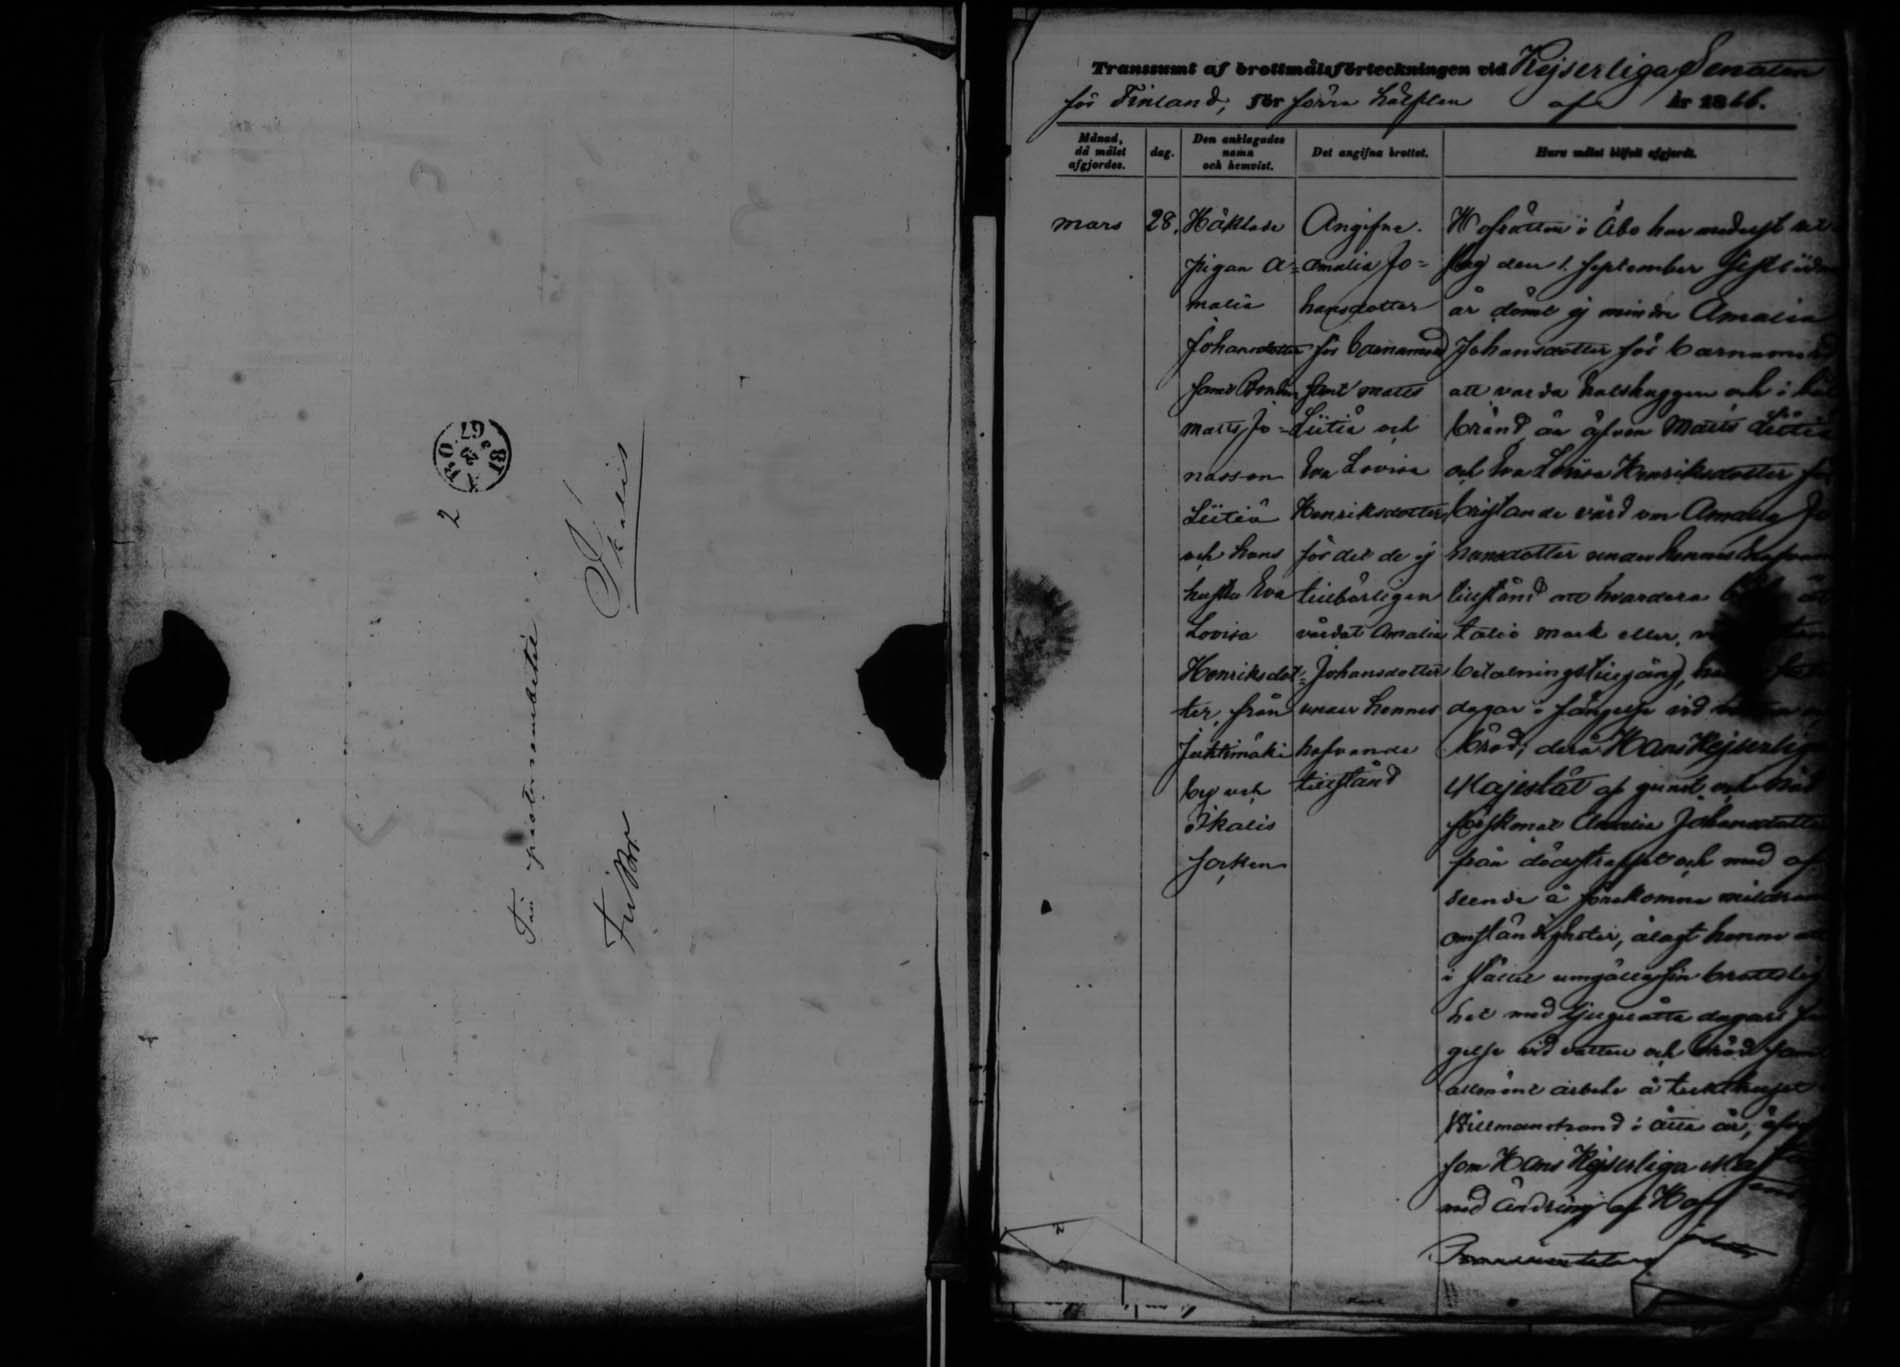 Till pastorsembetet i
Ikalis
Fri Bref
2
ÅBO
23 3
1867
Transsumt af brottmålsförteckningen vid Kejserliga Senaten
för Finland, för förra hälften af år 1866.
Månad, då målet afgjordes.
dag.
Den anklagades namn och hemvist.
Det angifna brottet.
Huru målet blifvit afgjordt.
mars
28.
Häktade
pigan A=
malia
Johansdotter
samt
Matts Jo=
nasson
Liitiä
och hans
hustru Eva
Lovisa
Henriksdot=
ter, från
Juhtimäki
by och
Ikalis
socken
Angifne.
Amalia Jo=
hansdotter
för barnamord
samt Matts
Liitiä och
Eva Lovisa
Henriksdotter
för det de ej
tillbörligen
vårdat Amalia
Johansdotter
under hennes
hafvande
tillstånd
Hofrätten i Åbo har medelst
den 1 September sistlidne
år dömt ej mindre Amalia
Johansdotter för barnamord
att varda halshuggen och i bål
bränd, än äfven Matts Liitiä
och Eva Lovisa Henriksdotter för
bristande vård om Amalia Jo
hansdotter under hennes hafvan
tillstånd att hvardera
tatio mark eller,
betalningstillgång,
dagar i fängelse vid
bröd; derå Hans Kejserliga
Majestät af gunst och nåd
förskonat Amalia Johansdotter
från dödsstraffet och med af
seende å förekomne mildran
omständigheter, ålagt henne att
i stället umgälla sin brottslig
het med tjuguåtta dagars
gelse vid vatten och bröd samt
allmänt arbete å tukthuset
Willmanstrand i åtta år,
som Hans Kejserliga Maj
med ändring af Hof